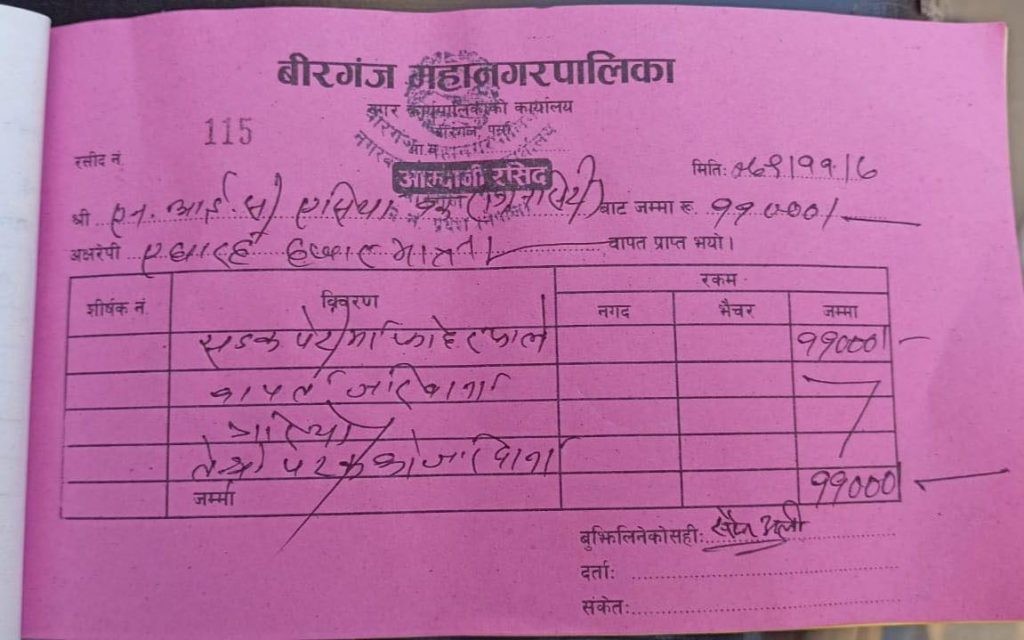 बीरगंज महानगरपालिका
नगर कार्यपालिकाको कार्यालय
115
बीरगंज, पर्सा
रसीद नं.
आम्दानी रसिद
मिति: ०७९।११।७
श्री एन. आई. सी एसिया बैंक बाट जम्मा रू. ११०००।-
अक्षरेपी एघार हजार मात्र। वापत प्राप्त भयो।
शीर्षक नं. विवरण रकम
नगद भैचर जम्मा
सडक पेटीमा फोहर फाले ११०००।-
वापत जरिवाना
गरियो
तेश्रो पटकको जरिवाना
जर्म्मा ११०००।-
बुझिलिनेकोसही:
दर्ता:
संकेत: